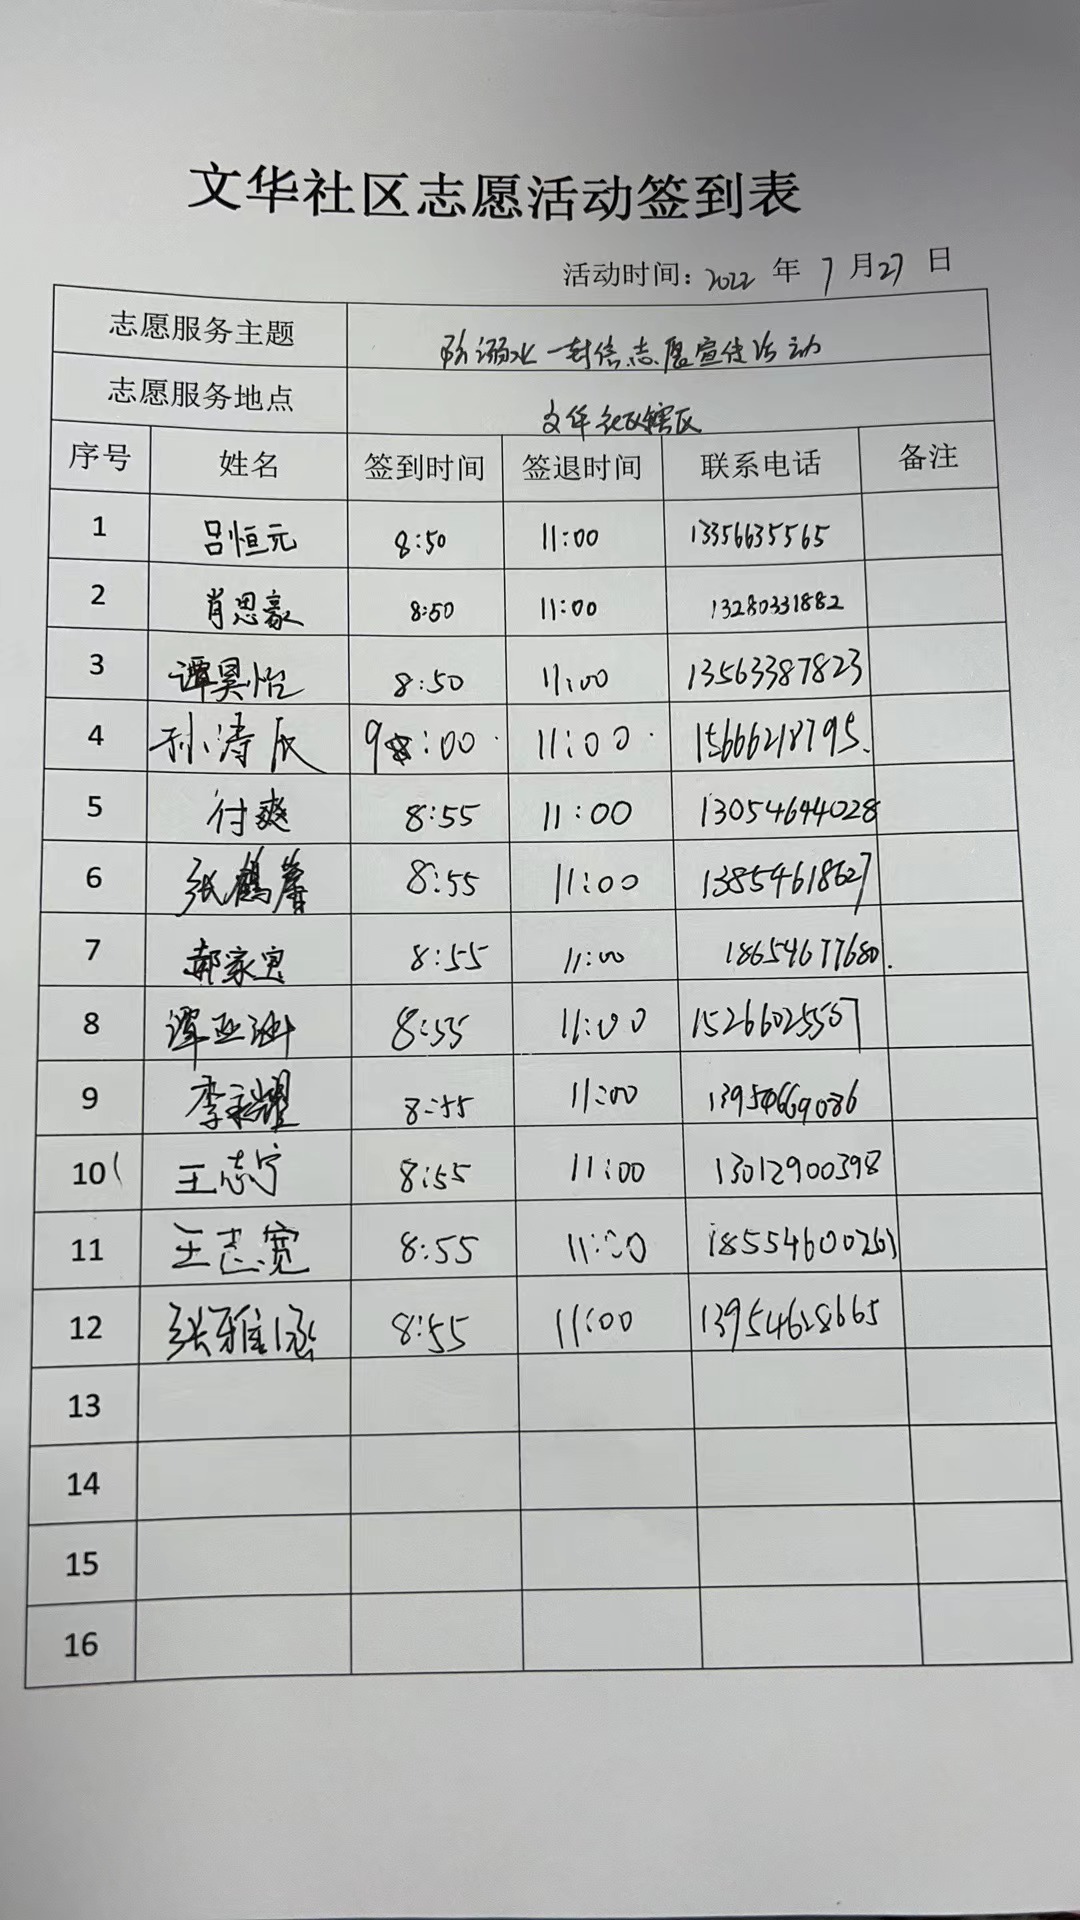 文华社区志愿活动签到表
活动时间：2022 年 7 月 27 日
志愿服务主题 防溺水一封信志愿宣传活动
志愿服务地点 文华社区辖区
序号 姓名 签到时间 签退时间 联系电话 备注
1 吕恒元 8:50 11:00 13356635565
2 肖思豪 8:50 11:00 13280331882
3 谭昊怡 8:50 11:00 13563387823
4 孙涛 9:00 11:00 15666218795
5 付爽 8:55 11:00 13054644028
6 张鹤馨 8:55 11:00 13854618627
7 郝家 8:55 11:00 18654677680
8 谭亚 8:55 11:00 15266025557
9 李 8:55 11:00
10 王志宁 8:55 11:00 13012900398
11 王志宽 8:55 11:00 18554600263
12 张雅涵 8:55 11:00 13954628665
13
14
15
16